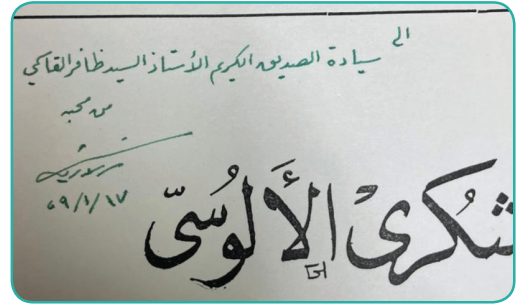 الى
سيادة الصديق الكريم الأستاذ السيد ظافر القاسمي
من محبه
٦٩/١/١٧
شكرى الألوسىّ